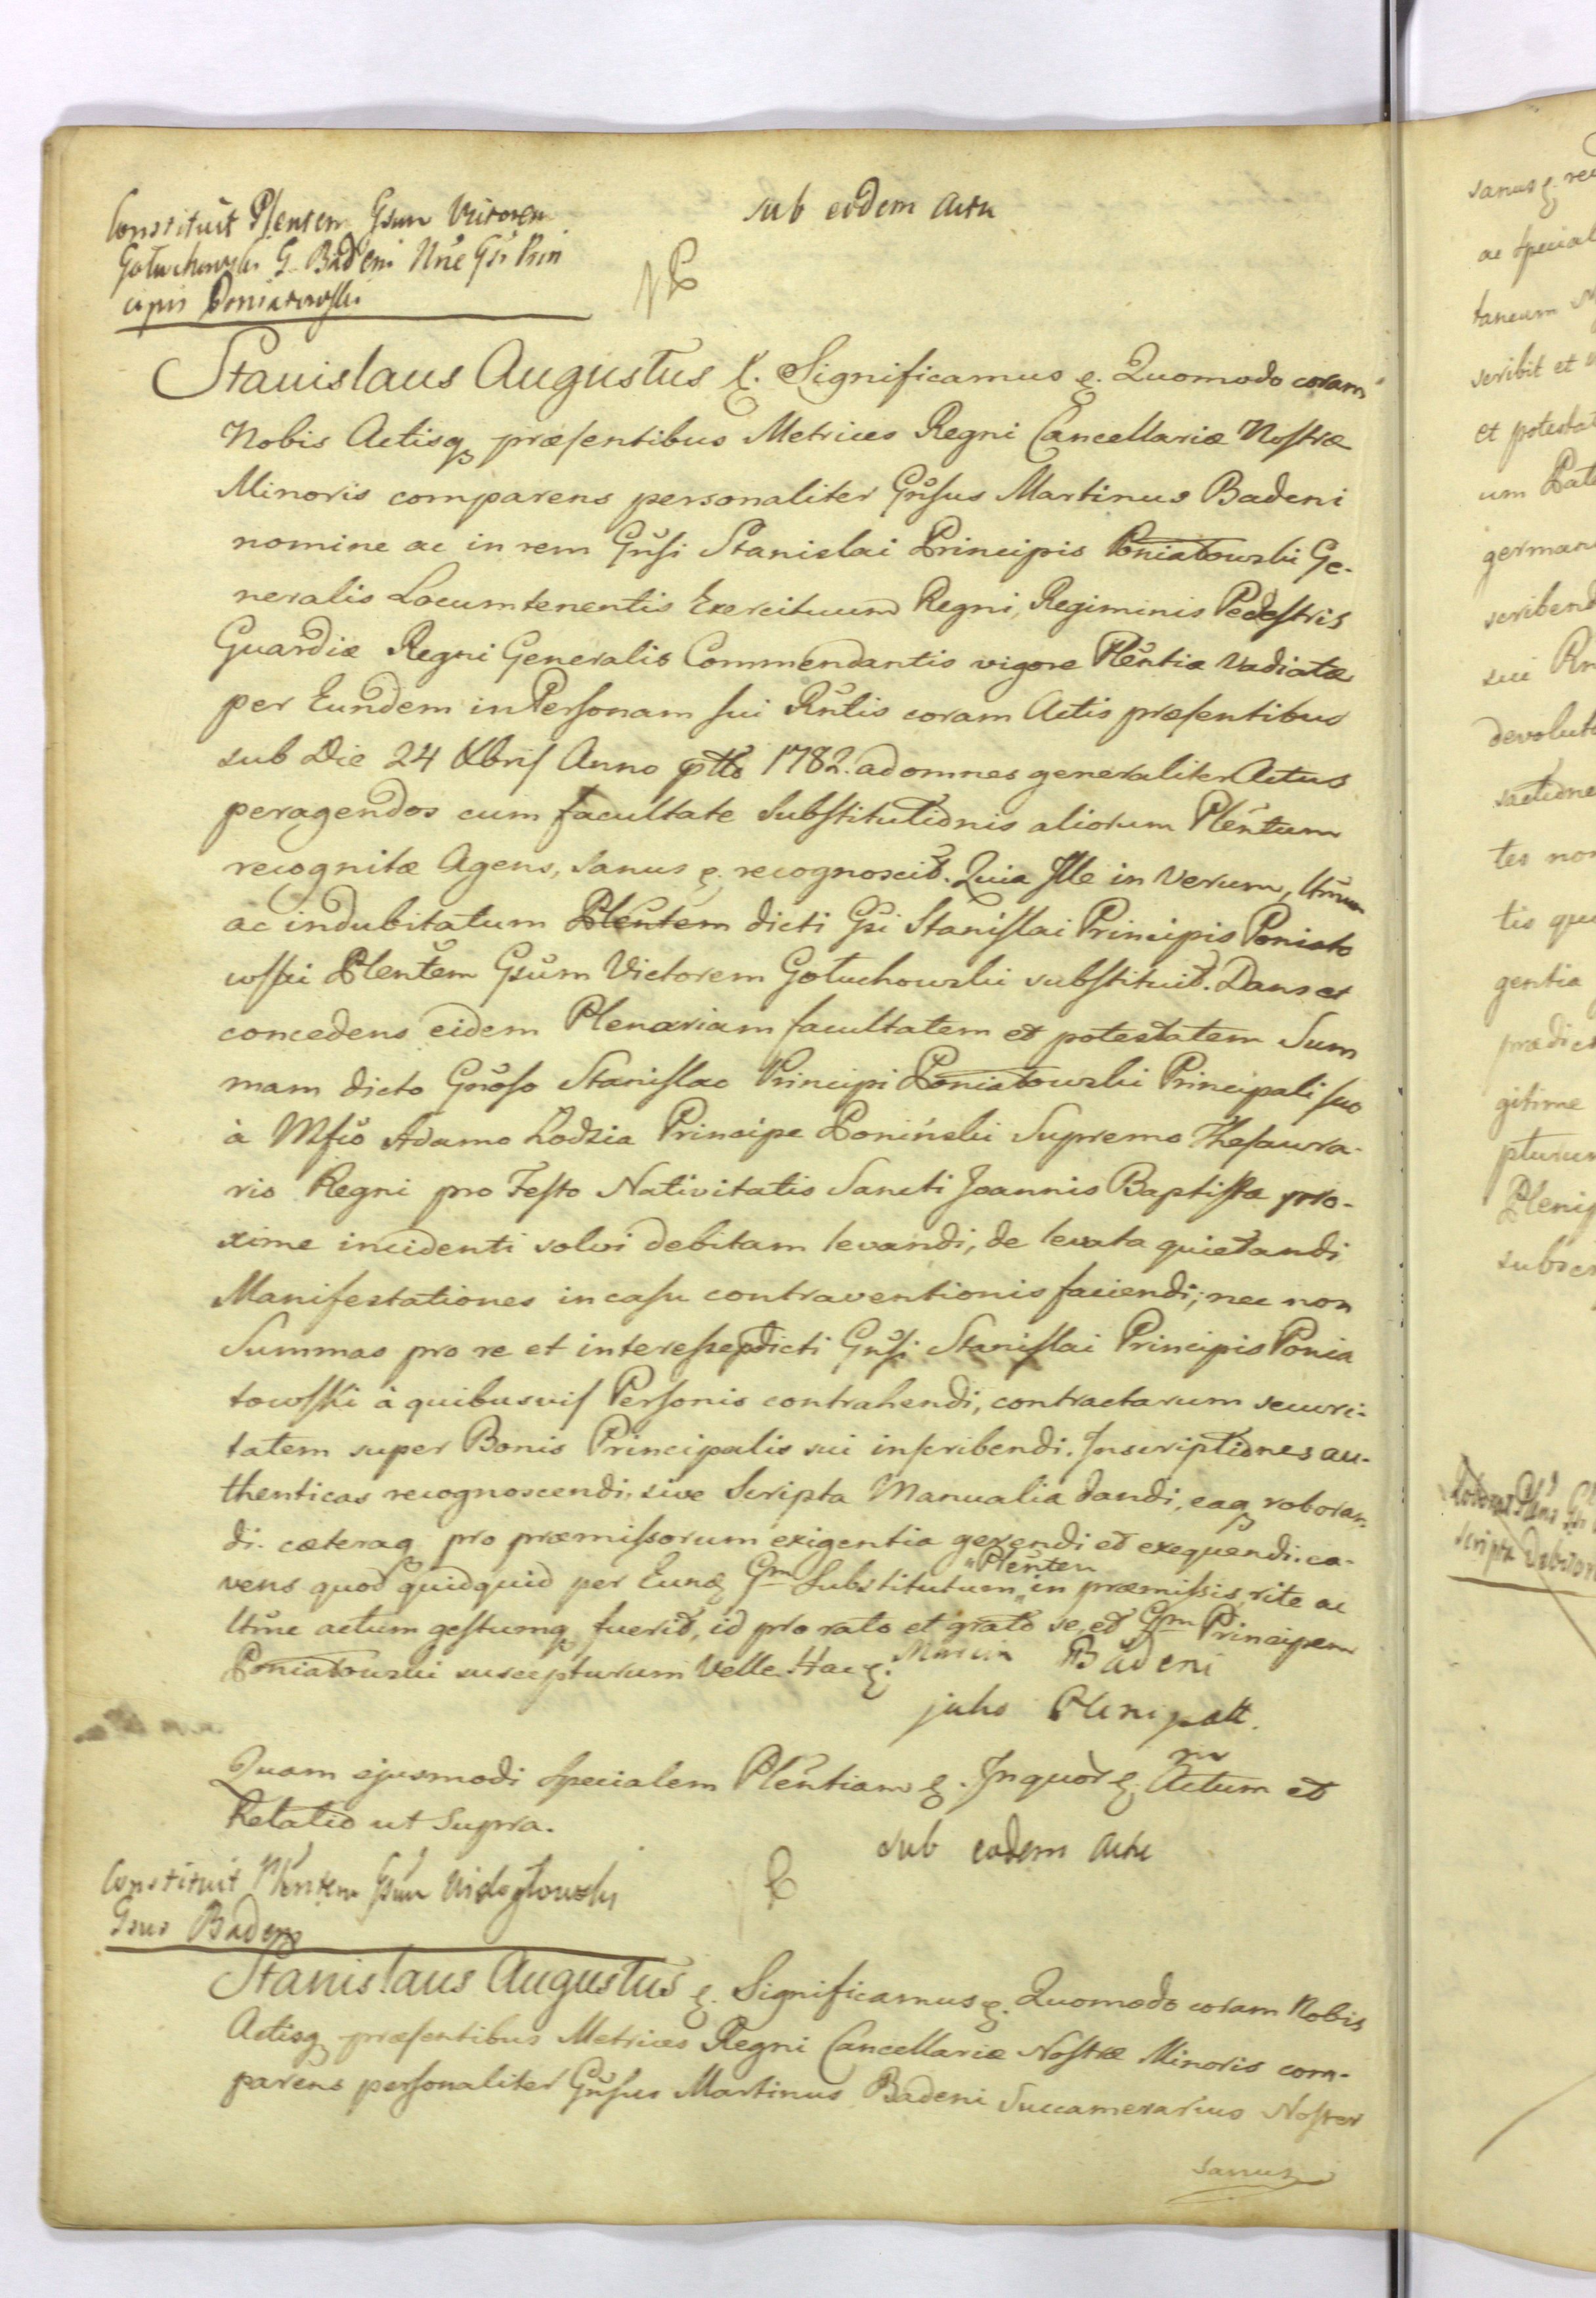 sub eodem actu
Constituit Plentem Gsum Victorem
Gołuchowski G. Badeni Nne Gsi Prin
cipis Poniatowski
Stanislaus Augustus &. Significamus &. Quomodo coram
Nobis Actisq præsentibus Metrices Regni Cancellariæ Nostræ
Minoris comparens personaliter Gnsus Martinus Badeni
nomine ac in rem Gnsi Stanislai Principis Poniatowski Ge-
neralis Locumtenentis Exercituum Regni, Regiminis Pedestris
Guardiæ Regni Generalis Commendantis vigore Plentiæ Vadiatæ
per Eundem in Personam sui Rntis coram Actis præsentibus
sub Die 24 Xbris Anno ptto 1782. ad omnes generaliter Actus
peragendos cum facultate Substitutionis aliorum Plentum
recognitæ Agens, sanus &. recognoscit. Quia Ille in Verum, ltmum
ac indubitatum Plentem dicti Gsi Stanislai Principis Poniato
wski Plentem Gsum Victorem Gołuchowski substituit. Dans et
concedens eidem Plenariam facultatem et potestatem Sum
mam dicto Gnoso Stanislao Principi Poniatowski Principali suo
à Mfco Adamo Łodzia Principe Poniński Supremo Thesaura-
rio Regni pro Festo Nativitatis Sancti Joannis Baptistæ pro-
xime incidenti solvi debitam levandi, de levata quietandi
Manifestationes in casu contraventionis faciendi; nec non
Summas pro re et interesse pdicti Gnsi Stanislai Principis Ponia
towski à quibusvis Personis contrahendi, contractarum securi-
tatem super Bonis Principalis sui inscribendi. Inscriptiones au-
thenticas recognoscendi, sive Scripta Manualia dandi, eaq roboran-
di. cæteraq pro præmissorum exigentia gerendi et exequendi. ca-
vens quod quidquid per Eund Gm Substitutum "Plentem" in præmissis, rite ac
ltme actum gestumq fuerit, id pro rato et grato se, et Gm Principem
Poniatowski suscepturum Velle. Hac &. Marcin Badeni
jako Plenipott.
Quam ejusmodi Specialem Plentiam &. In quor &. Actum et
Relatio ut Supra.
sub eodem actu
Constituit Plentem Gsum Wielogłowski
Gsus Badeni
Stanislaus Augustus &. Significamus &. Quomodo coram Nobis
Actisq præsentibus Metrices Regni Cancellariæ Nostræ Minoris com-
parens personaliter Gnsus Martinus Badeni Succamerarius Noster
sanus